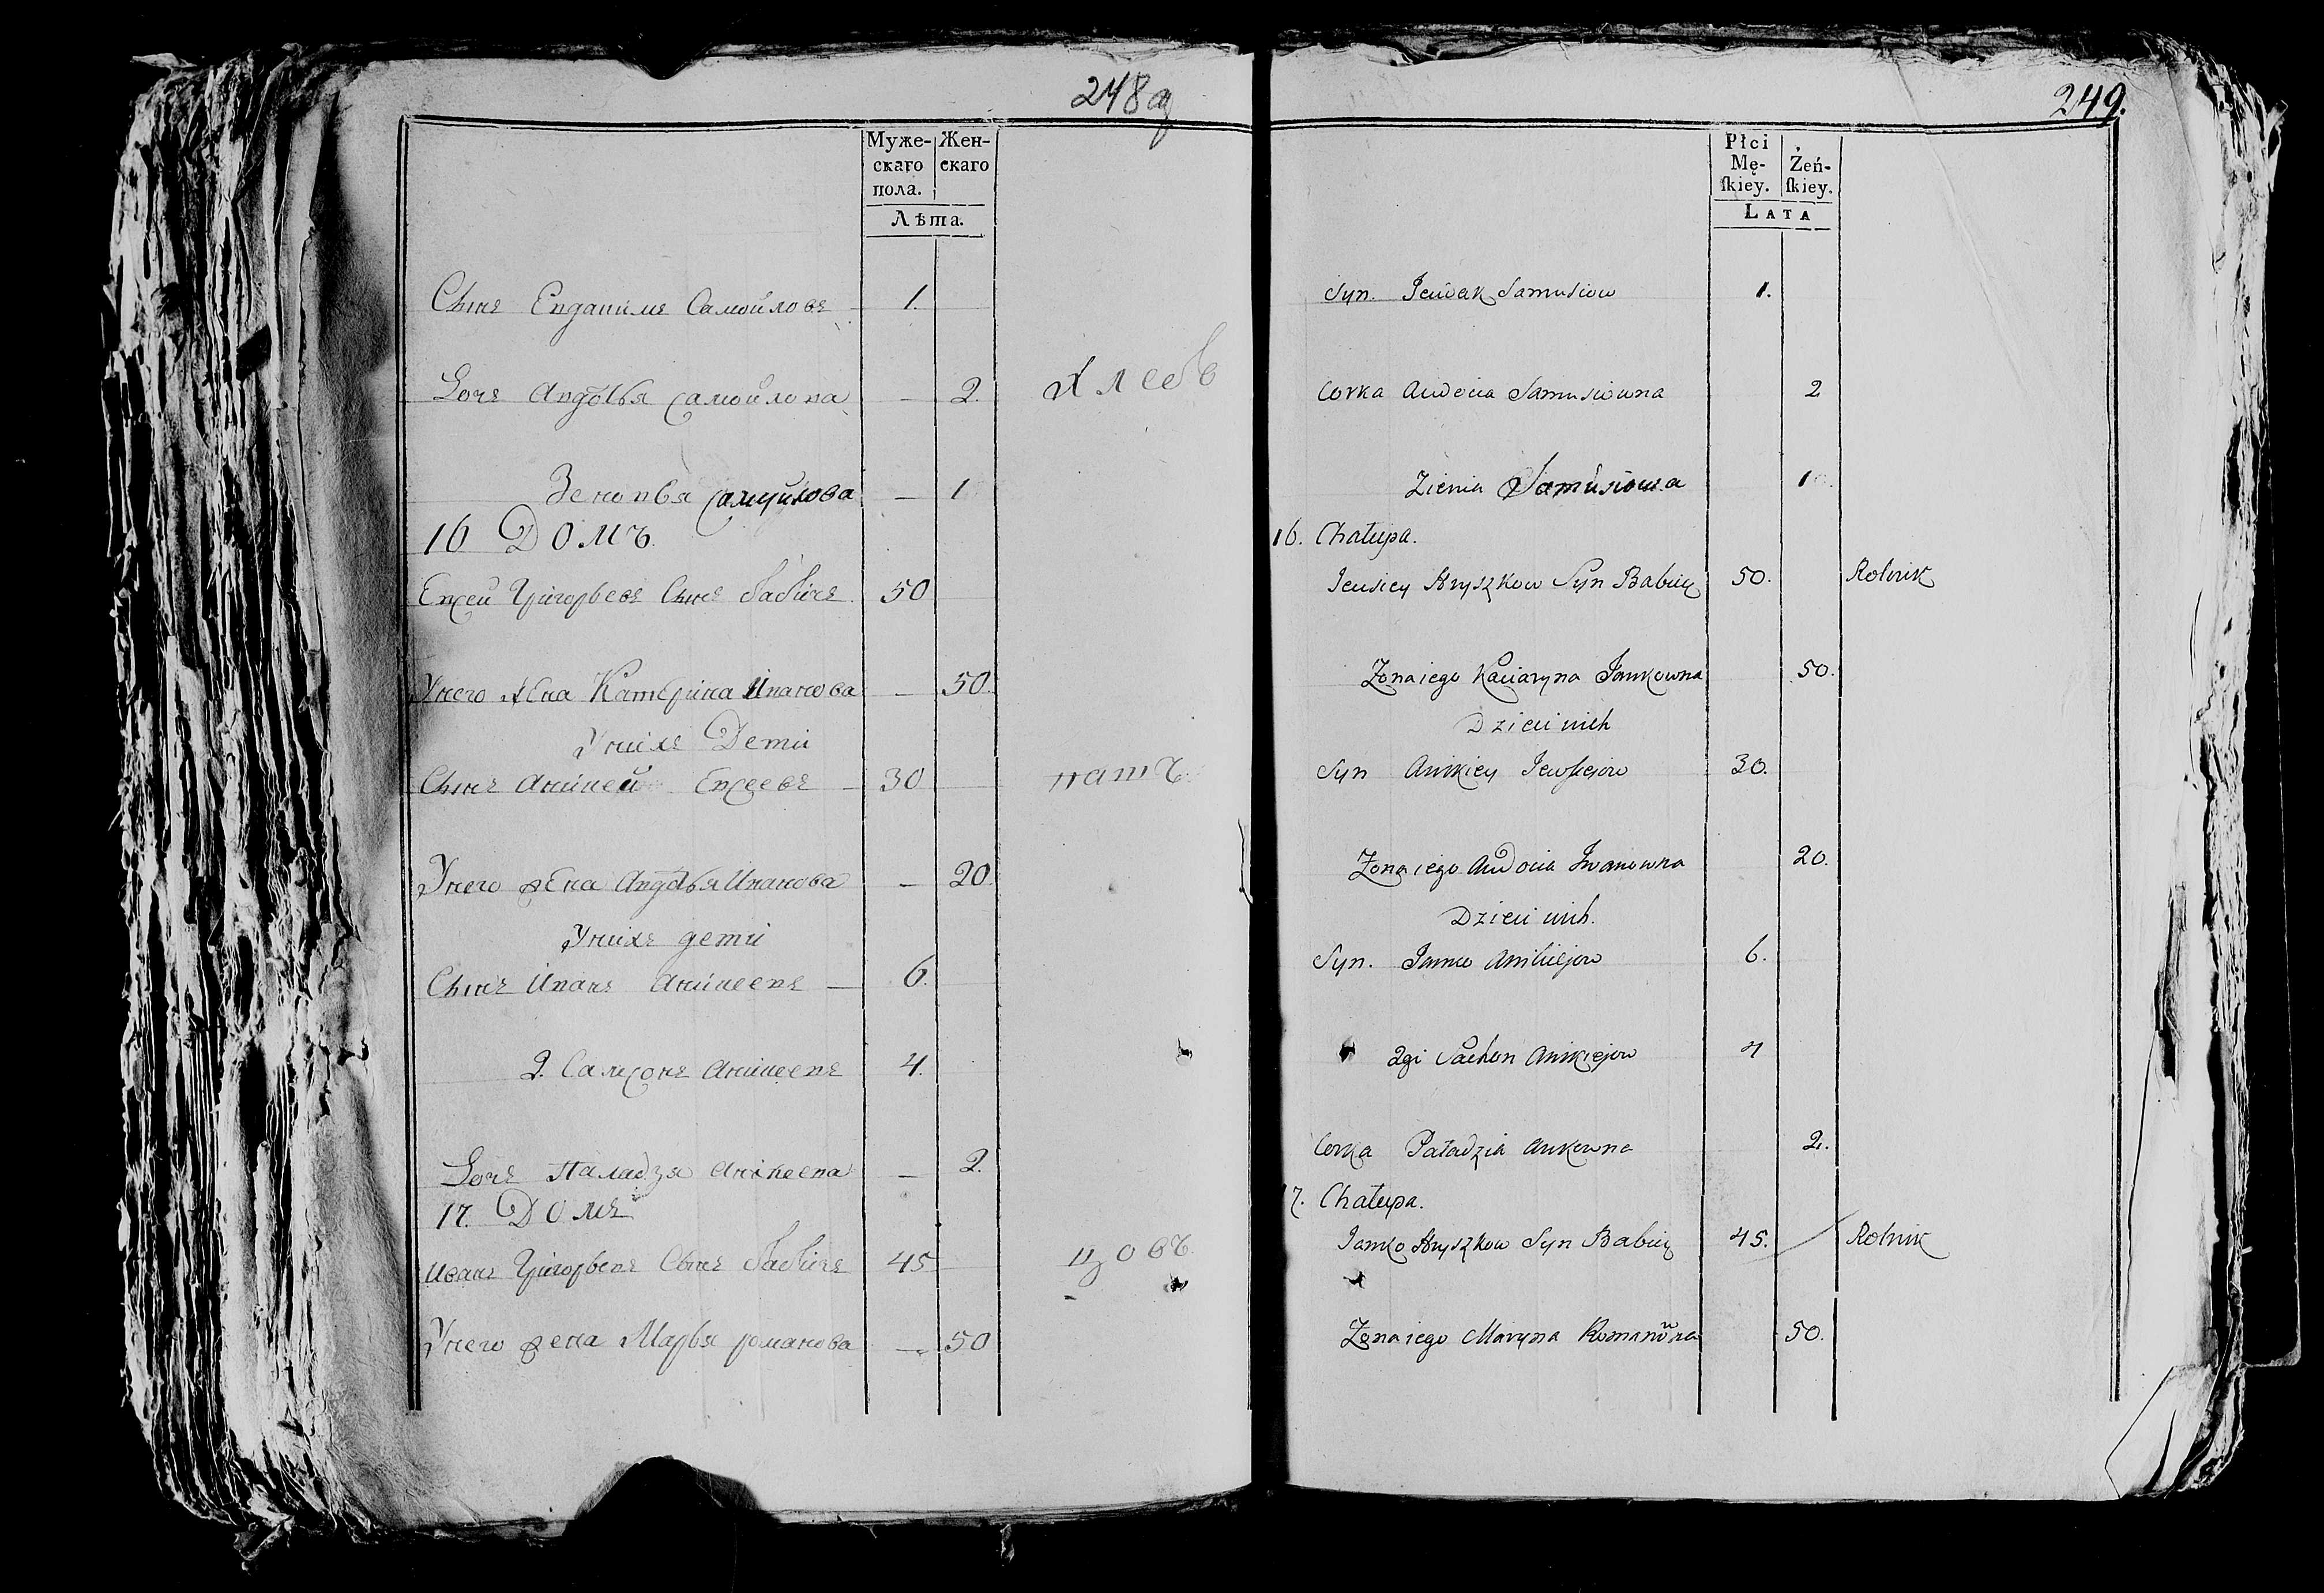 248
Муже-
скаго
пола.
Жен-
скаго
Лѣта.
Сынъ Евдакимъ Самойловъ 1.
Дочь Авдотья Самойлова — 2. Хлеб
Зеновья Самуйлова — 1
16 Домъ.
Евсей Григорьевъ Сынъ Бабичъ 50
У него жена Катерина Иванова — 50.
У нихъ Дети
Сынъ Аникей Евсеевъ 30 пашъ
У него жена Авдотья Иванова — 20.
У нихъ дети
Сынъ Иванъ Аникеевъ — 6.
2. Самсонъ Аникеевъ 4.
Дочь Паладзя Аникеева — 2.
17. Домъ
Иванъ Григорьевъ Сынъ Бабичъ 45 цовъ.
У него жена Марья романова — 50
249.
Płci
Mę-
ſkiey.
Żeń-
ſkiey.
LATA
Syn. Samusiow 1.
Corka Audocia Samusiowna 2
Zienia Samusiowa 1
16. Chałupa.
Jeusiey Hryszkow Syn Babicz 50. Rolnik
Zona iego Kaciaryna Jankowna 50.
Dzieci nich
Syn Anikiey Jewsiejow 30.
Zona iego Audocia Iwanowna 20.
Dzieci nich.
Syn. Janko Anikiejow 6.
2gi Anikiejow 4
Corka Paładzia Ankowna 2.
17. Chałupa.
Janko Hryszkow Syn Babicz 45. Rolnik
Zona iego Maryna Romanowna 50.